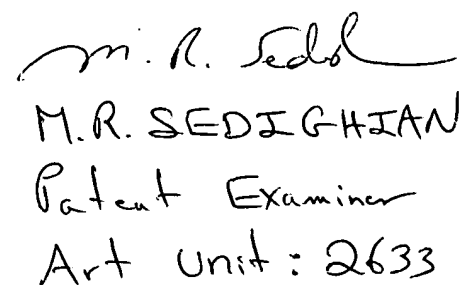 M. R. Sedgh
M.R. SEDIGHIAN
Patent Examiner
Art Unit: 2633